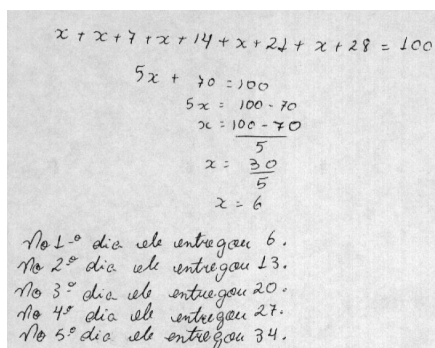 x + x + 7 + x + 14 + x + 21 + x + 28 = 100
5x + 70 = 100
5x = 100 - 70
x = 100 - 70
5
x = 30
5
x = 6
No 1º dia ele entregou 6.
No 2º dia ele entregou 13.
No 3º dia ele entregou 20.
No 4º dia ele entregou 27.
No 5º dia ele entregou 34.